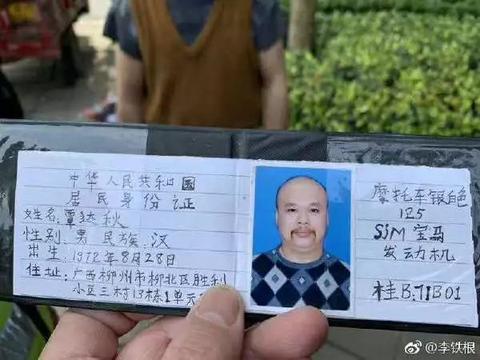 中华人民共和国
居民身份证
姓名:覃达秋
性别:男 民族:汉
出生:1972年8月28日
住址:广西柳州市柳北区胜利
小区三村13栋1单元
摩托车银色
125
SiM宝马
发动机
桂B:71B01
@李铁根